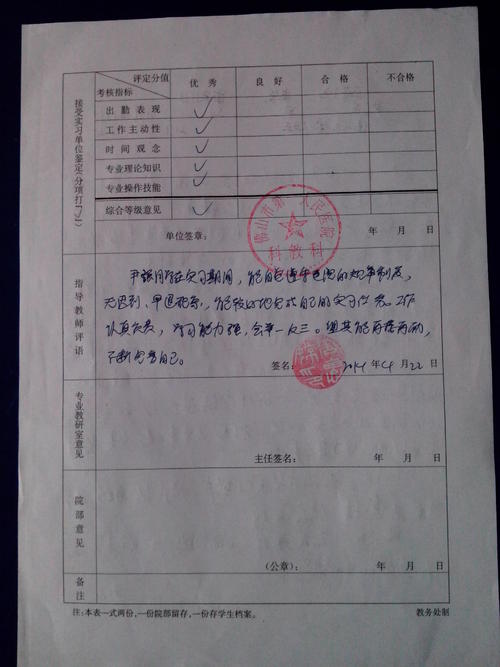 接受实习单位鉴定(分项打「√」)
评定分值 优秀 良好 合格 不合格
考核指标
出勤表现 √
工作主动性 √
时间观念 √
专业理论知识 √
专业操作技能 √
综合等级意见 √
单位签章: 年 月 日
佛山市第一人民医院
科教科
指导教师评语
尹 同学在实习期间,能自觉遵守医院的规章制度,
无迟到、早退现象,能较好地完成自己的实习任务。工作
认真负责,学习能力强,会举一反三。望其能再接再厉,
不断完善自己。
签名: 2014 年 4 月 22 日
专业教研室意见
主任签名: 年 月 日
院部意见
(公章): 年 月 日
备注
注:本表一式两份,一份院部留存,一份存学生档案。 教务处制